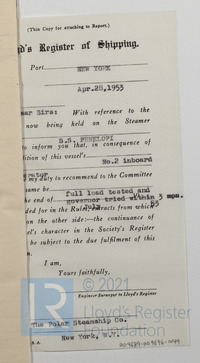 (This Copy for attaching to Report.)
d's Register of Shipping.
Port NEW YORK
Apr.28,1953
ear Sirs: With reference to the
now being held on the Steamer
S.S. PENELOPI
to inform you that, in consequence of
ition of this vessel's No.2 inboard
my duty to recommend to the Committee
same be full load tested and
he end of governor tried within 3 mos.
July 53
ded for in the Rules, extracts from which
on the other side:—the continuance of
el's character in the Society's Register
be subject to the due fulfilment of this
I am,
Yours faithfully,
Engineer Surveyor to Lloyd's Register
The Polar Steamship Co.
New York, N.Y.
© 2021
Lloyd's Register
Foundation